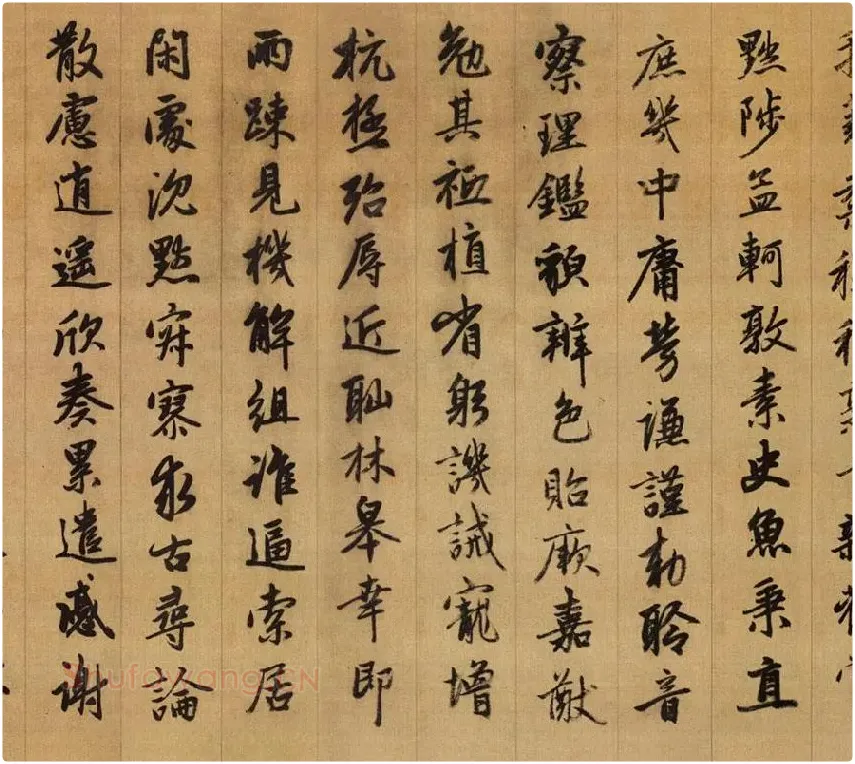 黜陟孟軻敦素史魚秉直
庶幾中庸勞謙謹勅聆音
察理鑑貌辨色貽厥嘉猷
勉其祗植省躬譏誡寵增
抗極殆辱近耻林皋幸即
兩踈見機解組誰逼索居
閑處沉默寂寥求古尋論
散慮逍遙欣奏累遣慼謝
Shufawang.CN